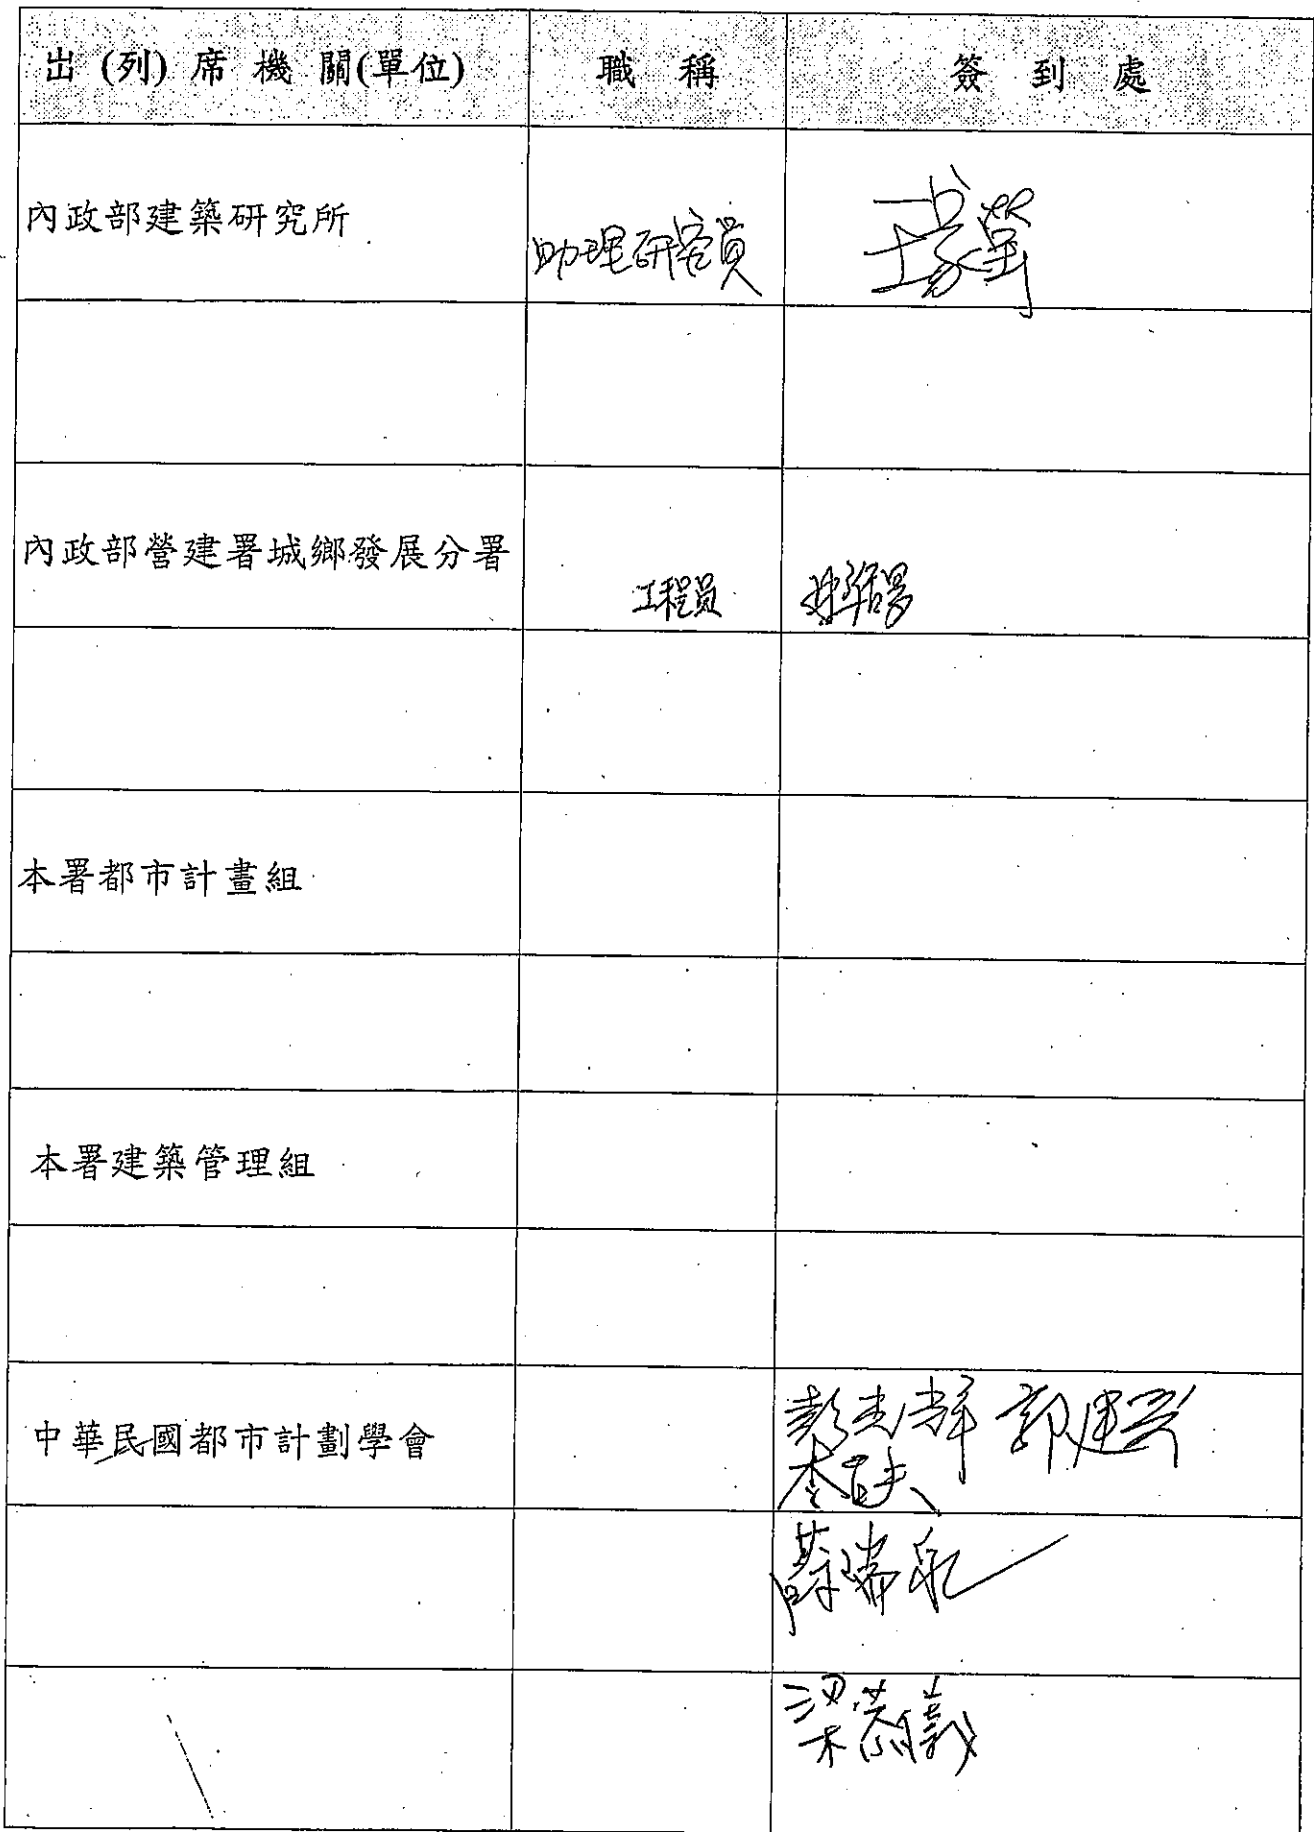 出 (列) 席 機 關(單位) 職 稱 簽 到 處
內政部建築研究所 助理研究員 王家瑩
內政部營建署城鄉發展分署 工程員 林
本署都市計畫組
本署建築管理組
中華民國都市計劃學會 彭光輝 郭建興
李正夫
蔡瑞泉
梁恭義